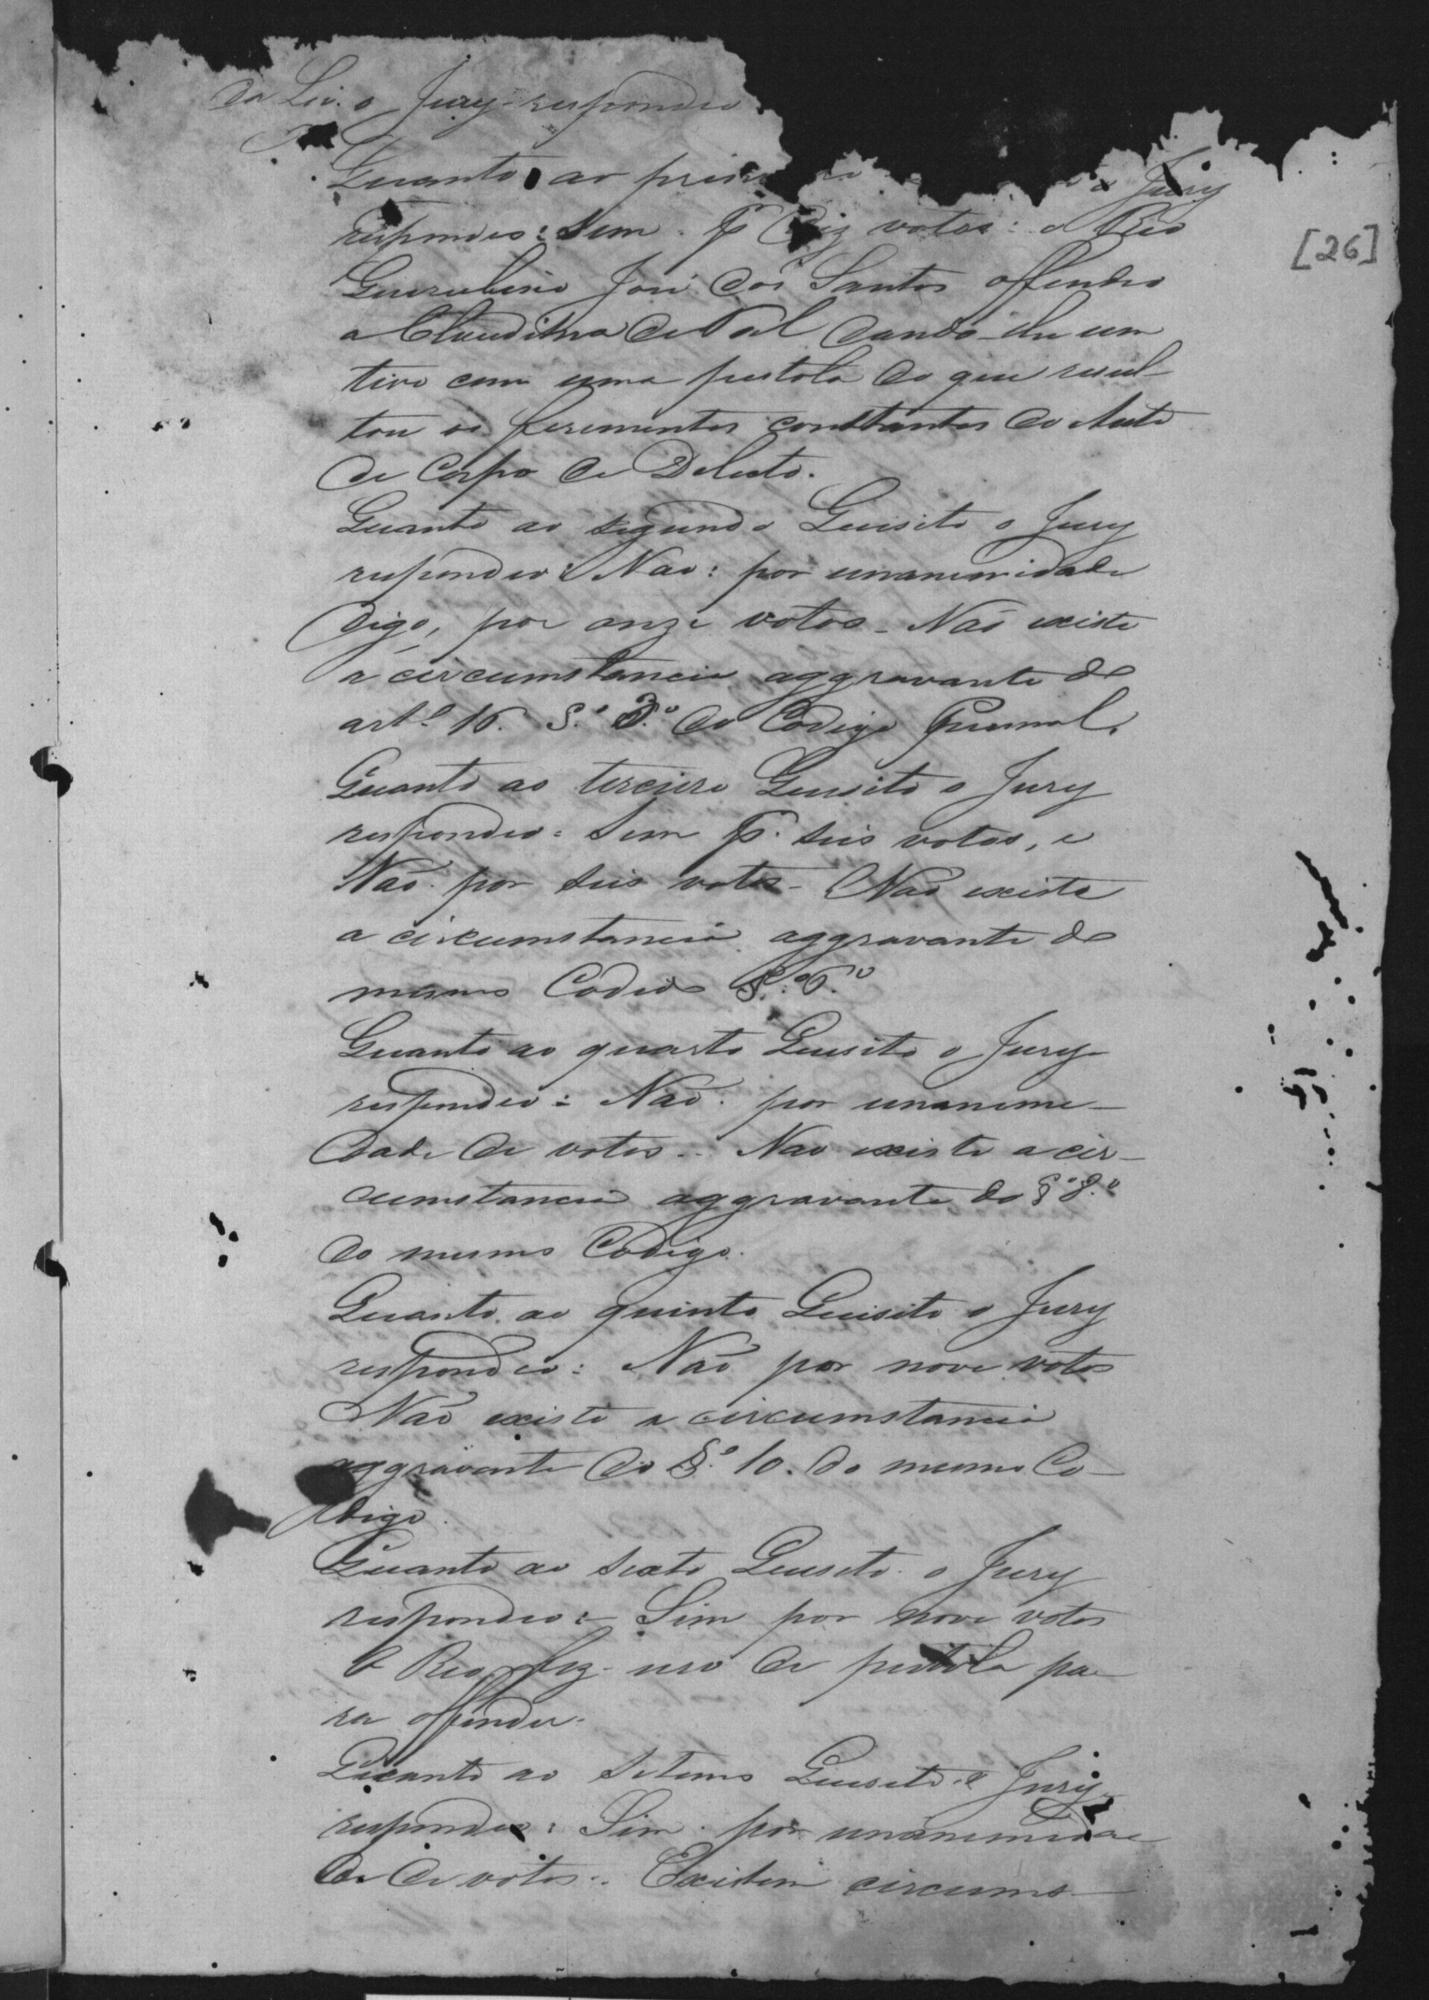 da Lei. o Jury respondeo
Quanto ao prim Jury
respondeo: Sim. P. Dez votos: o Reo
José dos Santos offendeo
a de Tal dando-lhe um
tiro com uma pistola do que resul
tou os ferimentos constantes do Auto
de Corpo de Delicto.
Quanto ao segundo Quisito o Jury
respondeo: Não: por unanimidade
digo, por onze votos - Não existe
a circumstancia aggravante do
artº 16. §.º 3.º do Codigo Criminal.
Quanto ao terceiro Quisito o Jury
respondeo: Sim P. seis votos, e
Não por seis votos - Não existe
a circumstancia aggravante do
mesmo Codigo §.º 6.º
Quanto ao quarto Quisito o Jury
respondeo: Não. por unanimi-
dade de votos.. Não existe a cir-
cumstancia aggravante do §º 8.º
do mesmo Codigo.
Quanto ao quinto Quisito o Jury
respondeo: Não por nove votos
Não existe a circumstancia
aggravante do §.º 10. do mesmo Co-
digo.
Quanto ao sexto Quisito o Jury
respondeo: Sim por nove votos
O Reo fez uso de pistola pa-
ra offender.
Quanto ao setimo Quisito o Jury
respondeo: Sim. por unanimida
de de votos.. Existem circums-
[26]